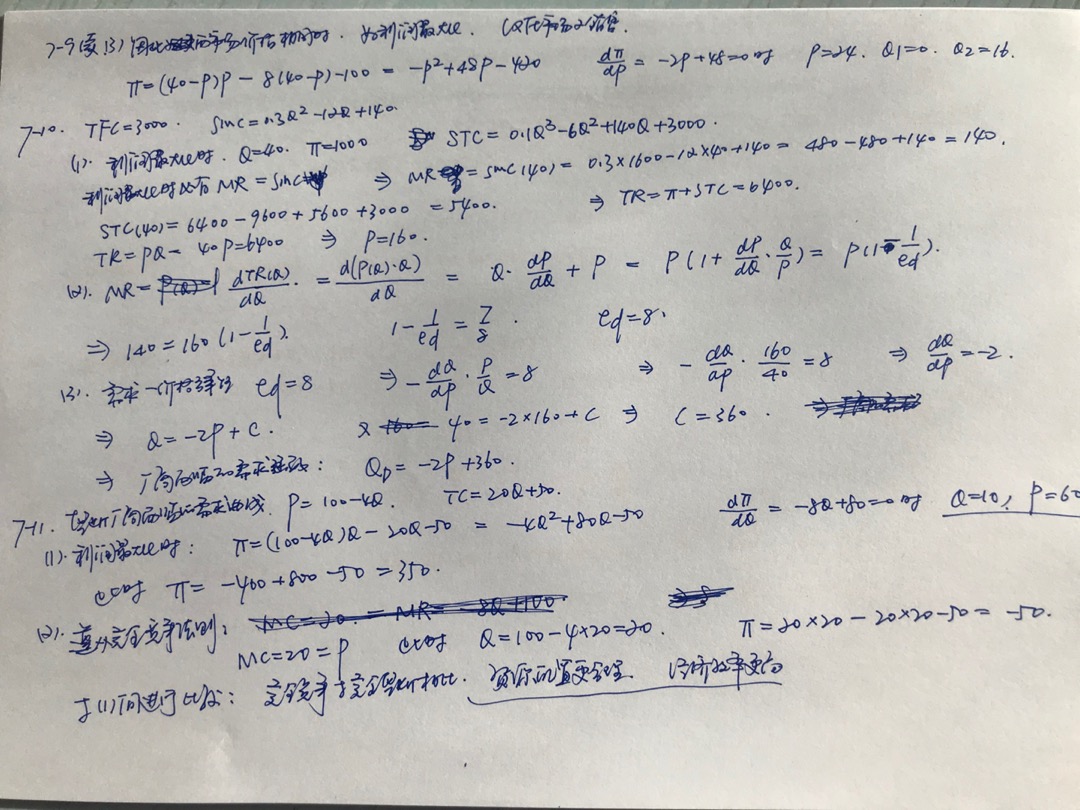 7-9(续)(3) 因此在市场价格相同时. 如利润最大化. 仅在市场2销售.
π=(40-P)P - 8(40-P)-100 = -P²+48P-420 dπ/dP = -2P+48=0时 P=24. Q1=0. Q2=16.
7-10. TFC=3000. SMC=0.3Q²-12Q+140.
(1). 利润最大化时. Q=40. π=1000 STC=0.1Q³-6Q²+140Q+3000.
利润最大化时必有 MR=SMC ⇒ MR=SMC(40)= 0.3×1600-12×40+140= 480-480+140=140.
STC(40)=6400-9600+5600+3000 =5400. ⇒ TR=π+STC=6400.
TR=PQ= 40P=6400 ⇒ P=160.
(2). MR= dTR(Q)/dQ = d(P(Q)·Q)/dQ = Q·dP/dQ + P = P(1+dP/dQ·Q/P)= P(1-1/ed).
⇒ 140=160(1-1/ed). 1-1/ed=7/8. ed=8.
(3). 需求-价格弹性 ed=8 ⇒ -dQ/dP·P/Q=8 ⇒ -dQ/dP·160/40=8 ⇒ dQ/dP=-2.
⇒ Q=-2P+C. 又 40=-2×160+C ⇒ C=360.
⇒ 厂商面临的需求曲线: QD=-2P+360.
7-11. 垄断厂商面临的需求曲线. P=100-4Q. TC=20Q+50.
(1). 利润最大化时: π=(100-4Q)Q-20Q-50 = -4Q²+80Q-50 dπ/dQ = -8Q+80=0时 Q=10, P=60
此时 π= -400+800-50=350.
(2). 遵从完全竞争法则:
MC=20=P 此时 Q=100-4×20=20. π=20×20-20×20-50= -50.
与(1)问进行比较: 完全竞争与完全垄断相比. 资源配置更合理 经济效率更高